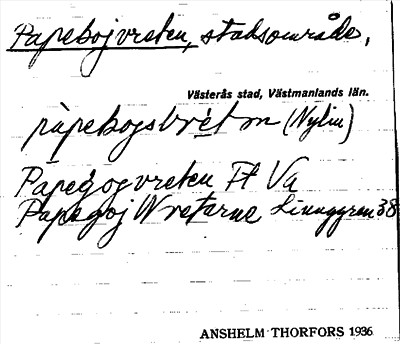 Papebojvreten, stadsområde,
Västerås stad, Västmanlands län.
pàpebogsbrét m (Nylin)
Papegojvreten Ft Va
Papegoj Wretarne Linnggren 38
ANSHELM THORFORS 1936